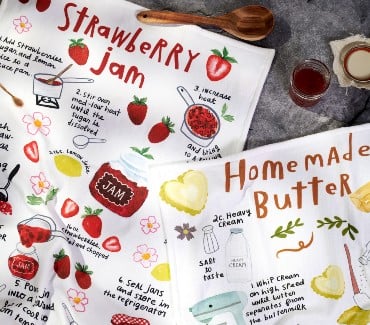 Strawberry
Jam
1. Add strawberries
sugar, and lemon
juice to a
sauce pan.
2. Stir over
med-low heat
until the
sugar is
dissolved
3. Increase
heat
and
bring
lemon juice
strawberries
and chopped
JAM
5. Pour
jam
into a
cool
6. Seal jars
and store in
the refrigerator
Homemade
Butter
2c. Heavy
cream
SALT
to
taste
HEAVY
CREAM
1. Whip cream
on high speed
until butter
separates from
the buttermilk